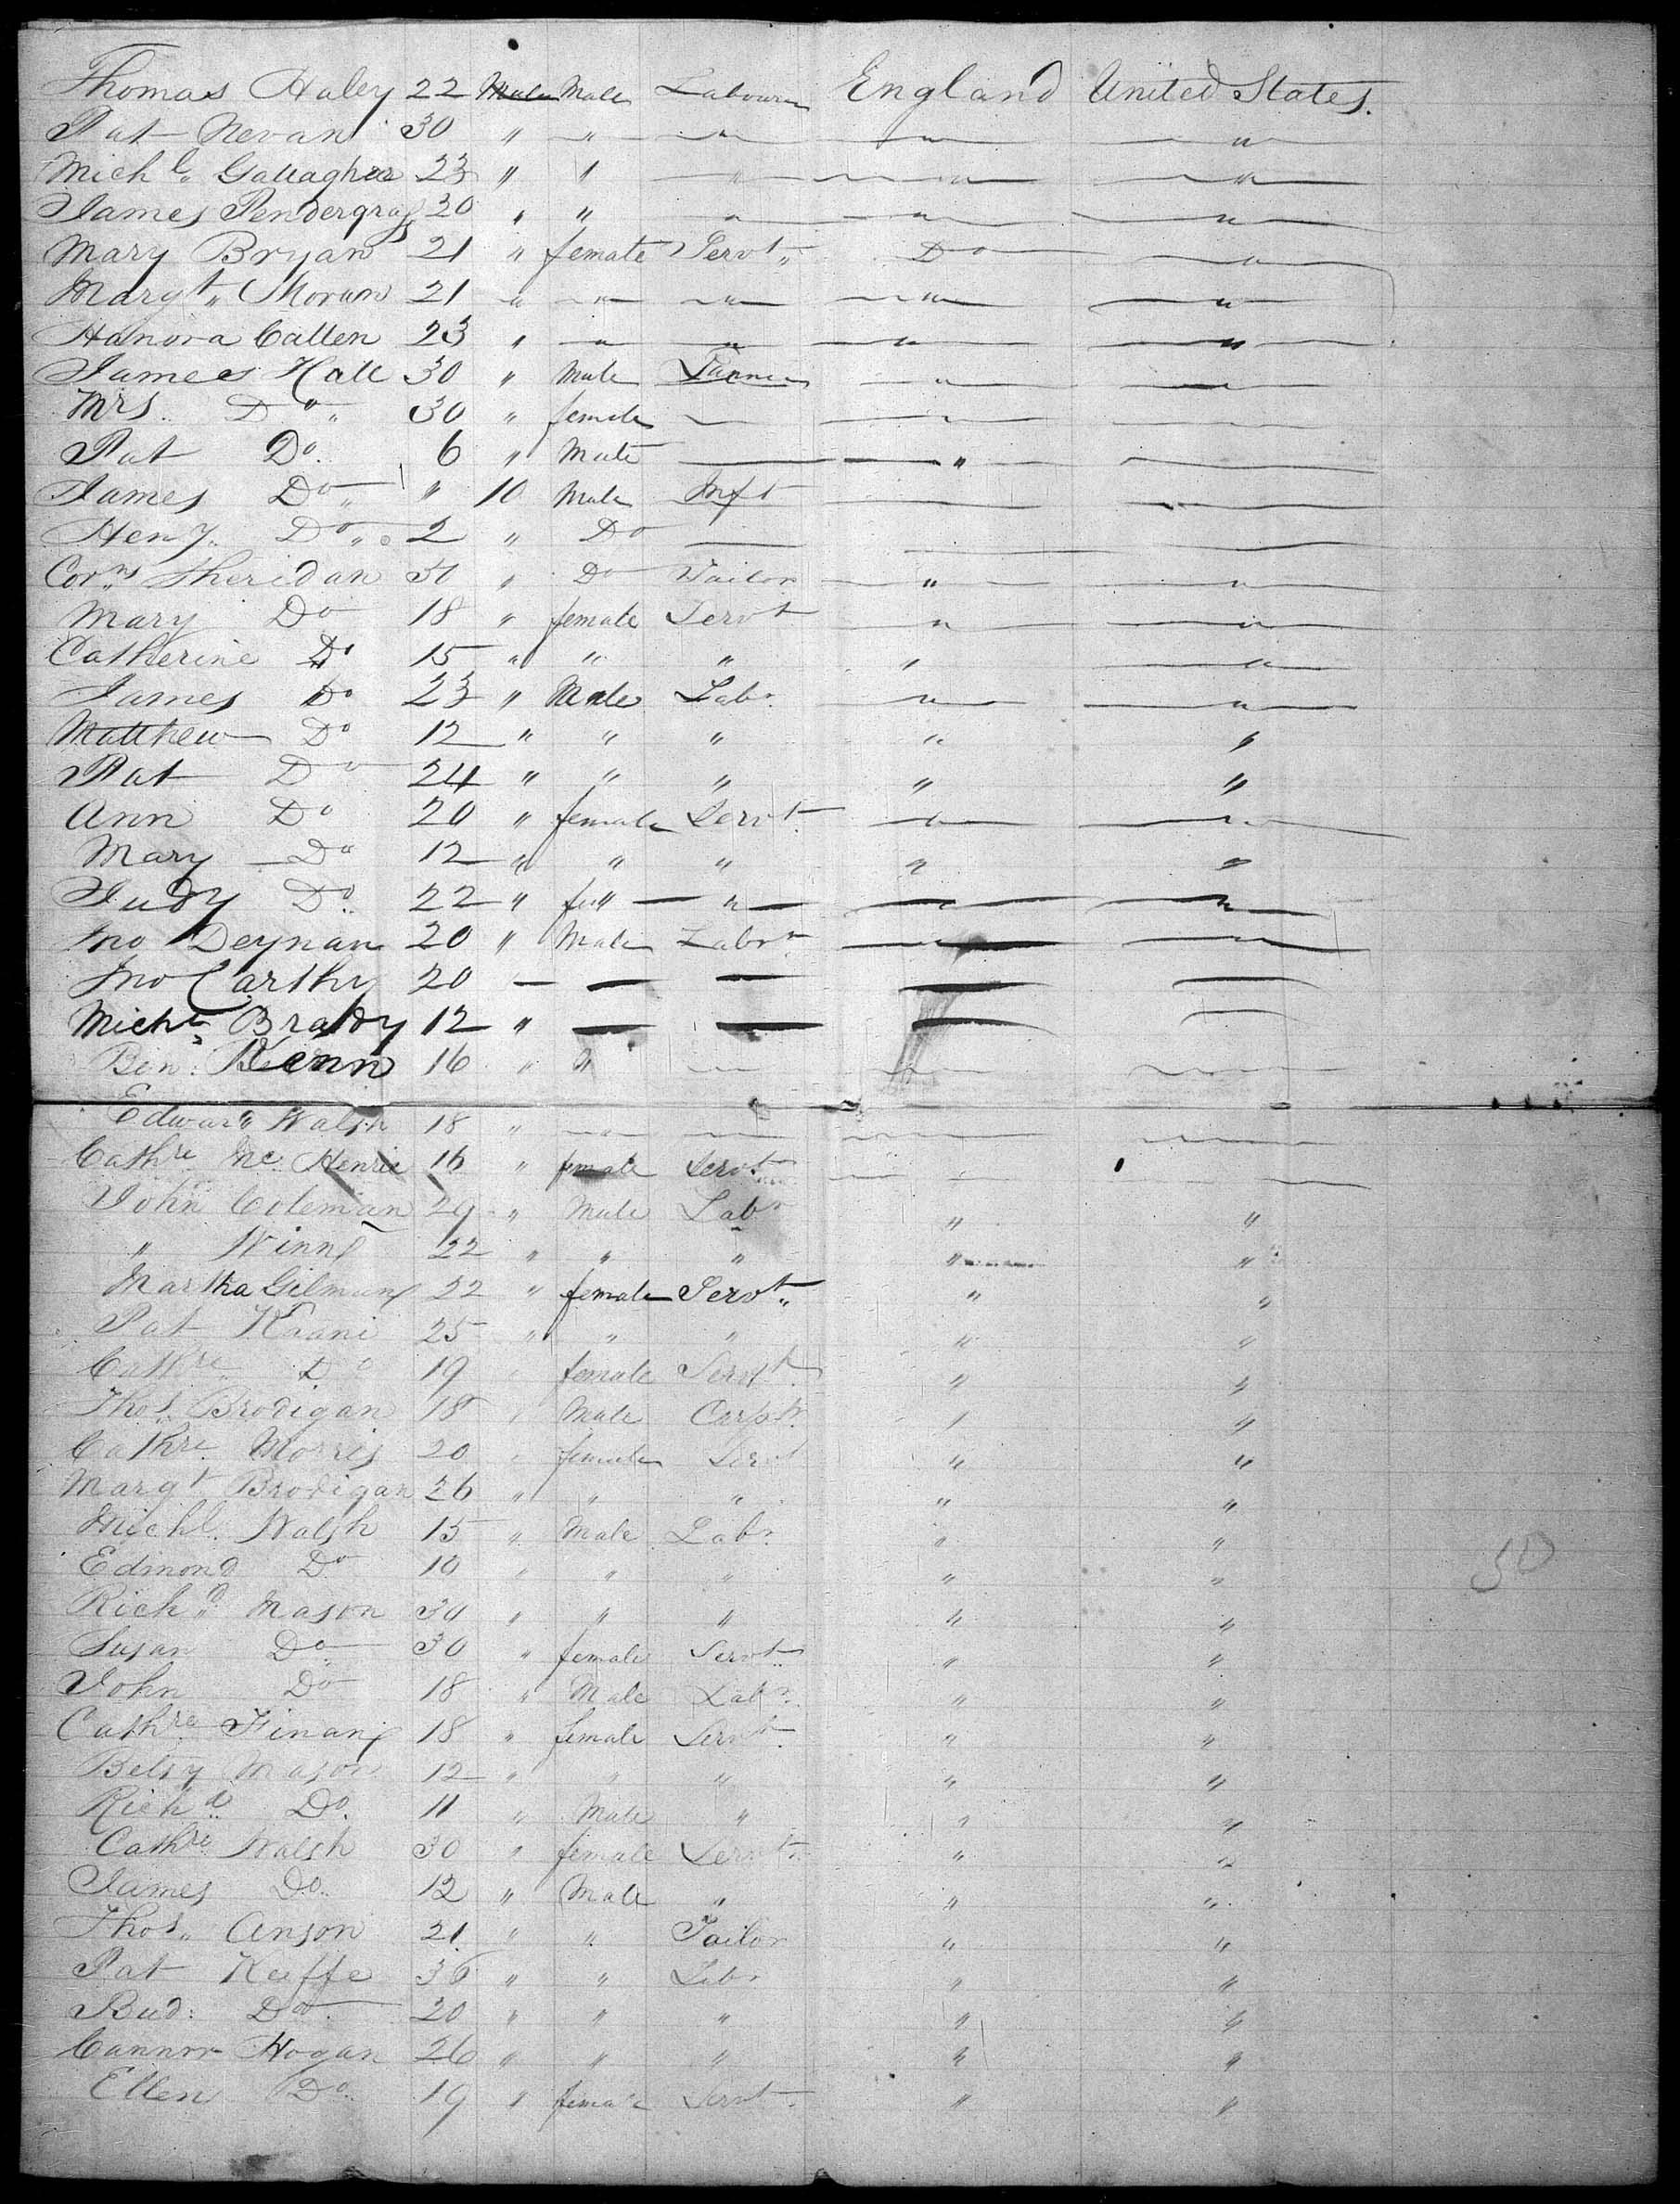 Thomas Haley 22 Male Male Labourer England United States.
Pat Nevan 30 " " " " "
Michl. Gallagher 23 " " " " "
James Pendergrass 20 " " " " "
Mary Bryan 21 " female Servt. Do "
Margt. Moran 21 " " " " "
Hanora Callen 23 " " " " "
James Hall 30 " Male " "
Mrs. Do 30 " female
Pat Do. 6 " Male "
James Do " 10 Male Inft
Heny. Do 2 " Do
Corns. Sheridan 30 " Do Tailor " "
Mary Do 18 " female Servt " "
Catherine Do 15 " " " " "
James Do 23 " Male Labr. " "
Matthew Do 12 " " " " "
Pat Do 24 " " " " "
Ann Do 20 " female Servt. " "
Mary Do 12 " " " " "
Judy Do. 22 " " "
Jno Deynan 20 " Male Labr. "
Jno Carthy 20
Michl. Brady 12 "
Ben. 16 " "
Edward Walsh 18 " "
Cathre Mc Henrie 16 " female Servt
John Coleman 29 " Male Labr " "
" Winn 22 " " " " "
Martha Gilman 22 " female Servt. " "
Pat Kaani 25 " " " " "
Cathre. Do 19 " female Servt. " "
Thos. Brodigan 18 " Male Carptr. " "
Cathre. Morris 20 " female Servt " "
Margt Brodigan 26 " " " " "
Michl. Walsh 15 " Male Labr. " "
Edmond Do 10 " " " " "
Richd. Mason 30 " " " " "
Susan Do 30 " female Servt " "
John Do 18 " Male Labr. " "
Cathre. Finan 18 " female Servt. " "
Betsy Mason 12 " " " " "
Richd. Do. 11 " Male " " "
Cathre Walsh 30 " female Servt. " "
James Do. 12 " Male " " "
Thos. Anson 21 " " Tailor " "
Pat Keiffe 36 " " Labr " "
Do. 20 " " " " "
Cannor Hogan 26 " " " " "
Ellen Do. 19 " female Servt. " "
50